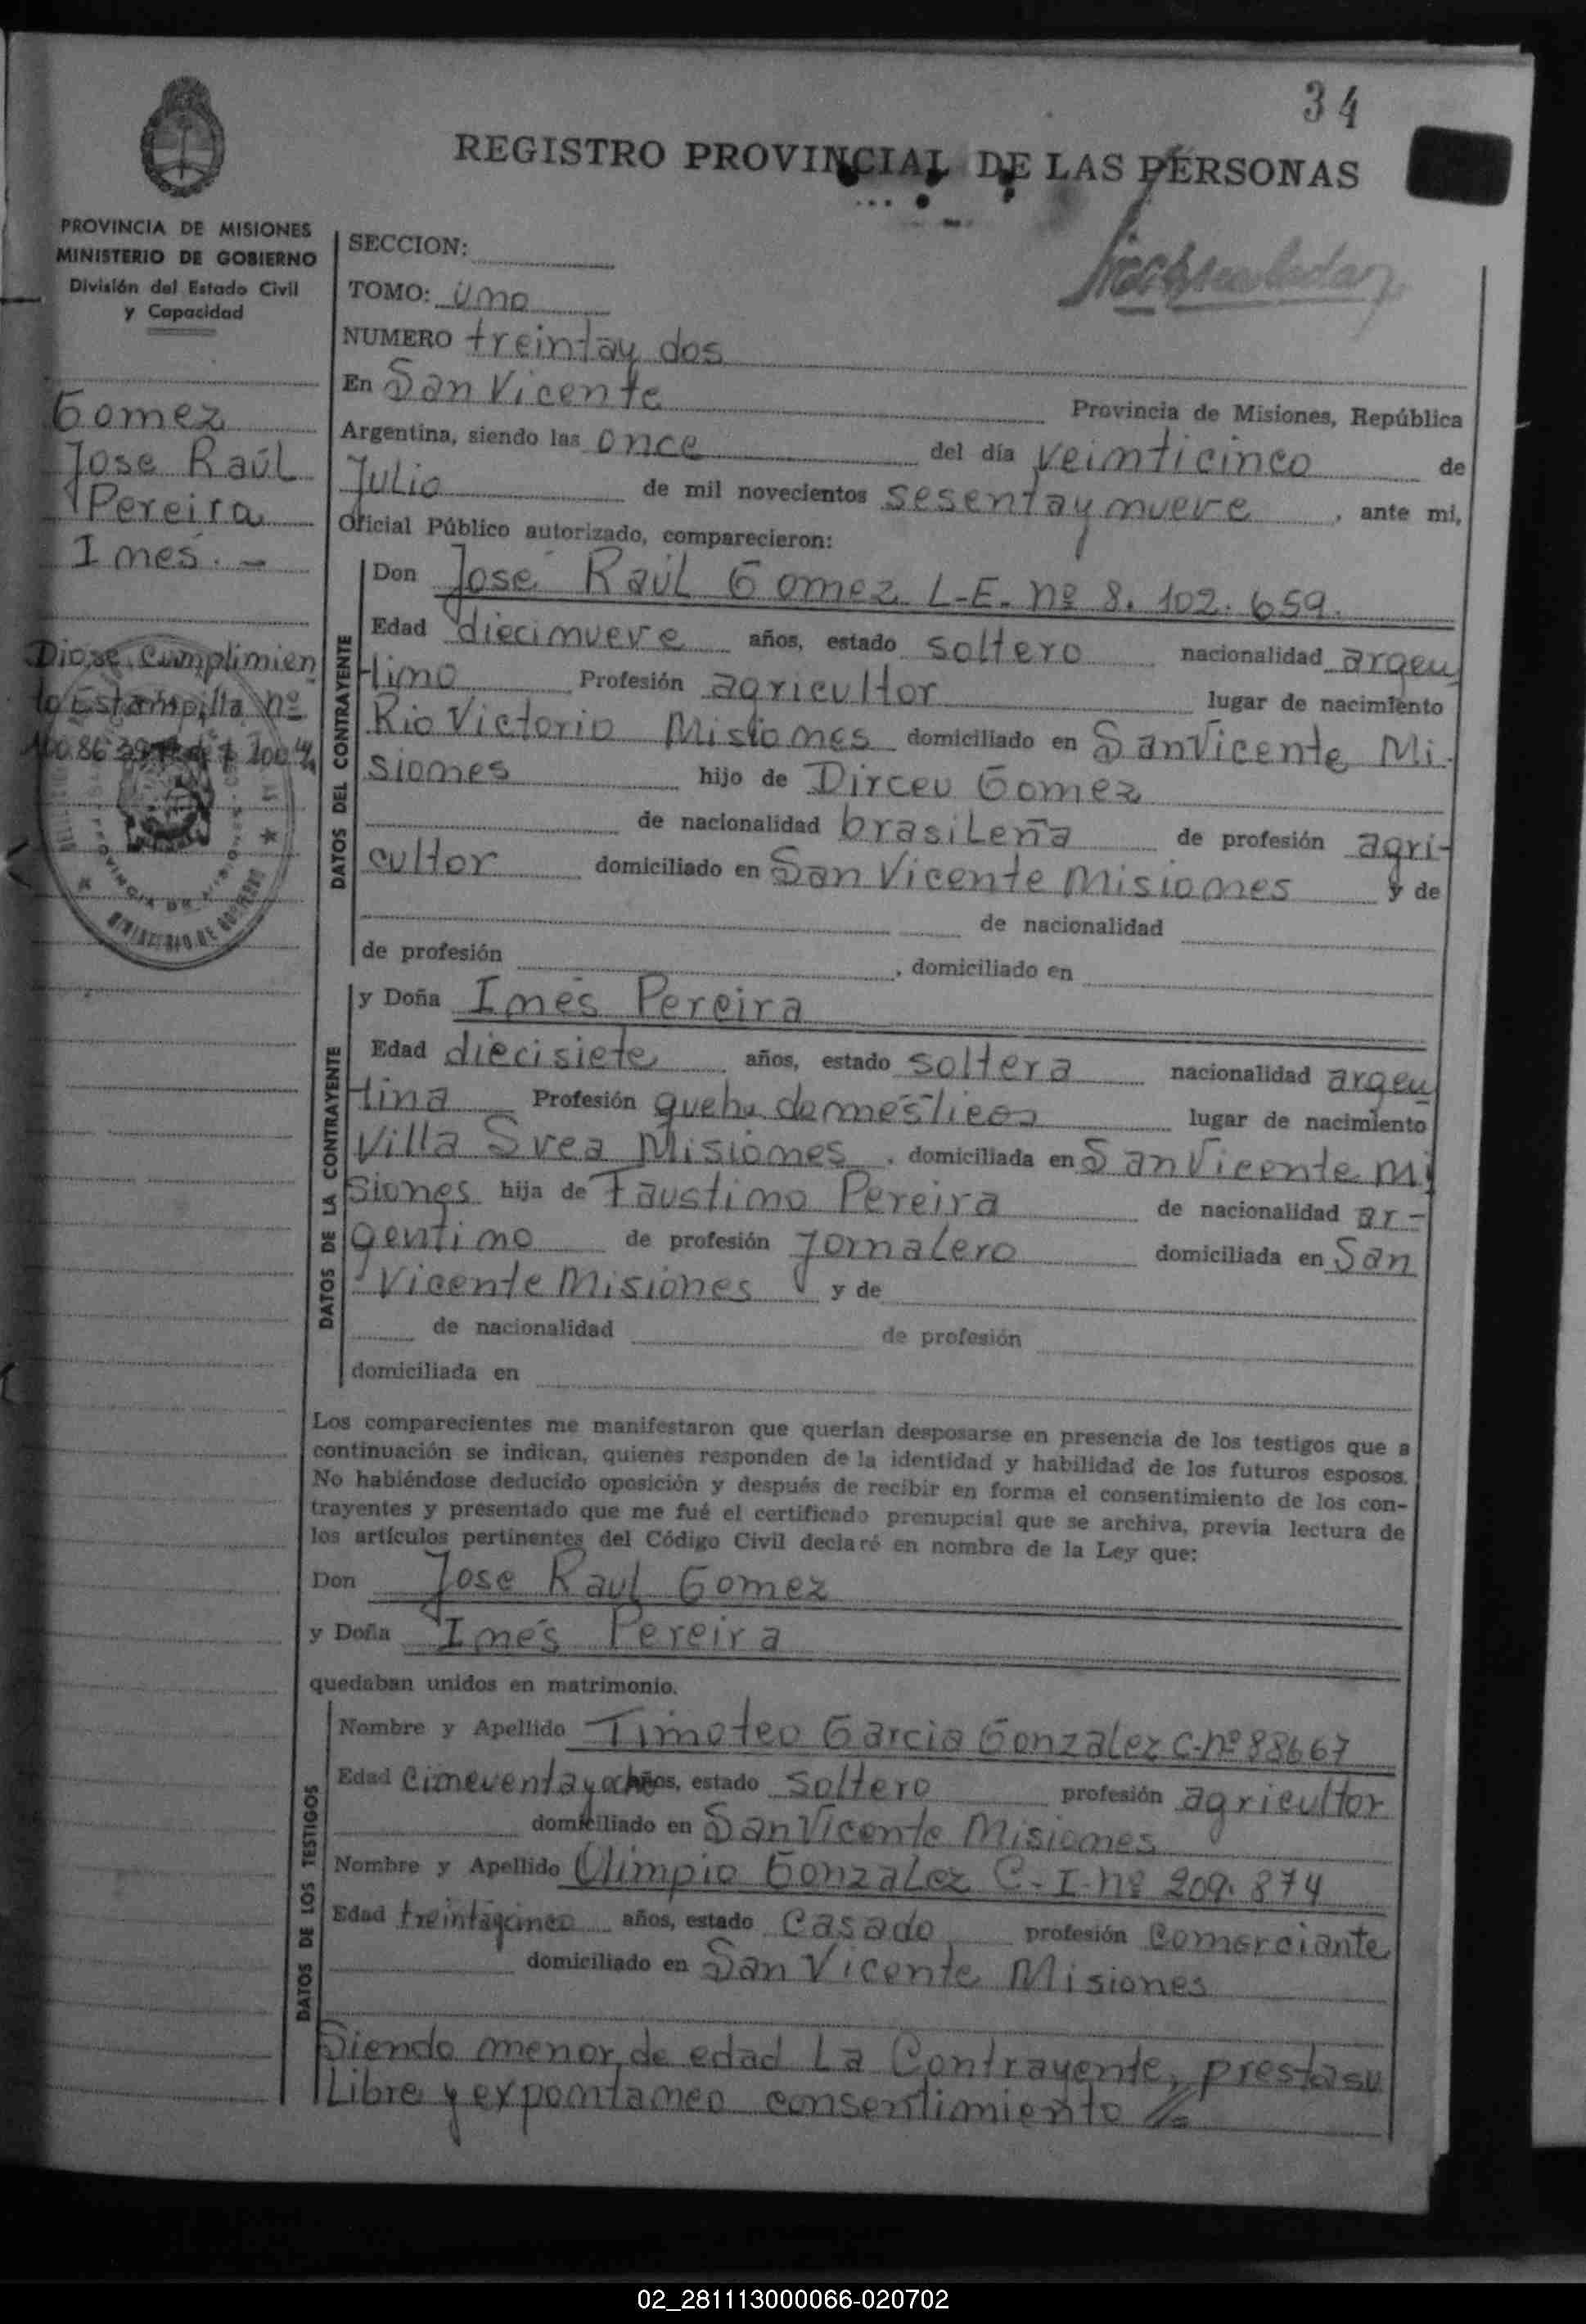 34
REGISTRO PROVINCIAL DE LAS PERSONAS
PROVINCIA DE MISIONES
MINISTERIO DE GOBIERNO
División del Estado Civil
y Capacidad
Gomez
Jose Raúl
Pereira
Ines. -
Diose cumplimien
to Estampilla nº
SECCION:
TOMO: uno
NUMERO treintay dos
En San Vicente Provincia de Misiones, República
Argentina, siendo las once del día veinticinco de
Julio de mil novecientos sesentay nueve, ante mi,
Oficial Público autorizado, comparecieron:
DATOS DEL CONTRAYENTE
Don José Raúl Gomez L-E. nº 8.102.659.
Edad diecinueve años, estado soltero nacionalidad argen
tino Profesión agricultor lugar de nacimiento
Rio Victorio Misiones domiciliado en San Vicente Mi.
siones hijo de Dirceu Gomez
de nacionalidad brasileña de profesión agri-
cultor domiciliado en San Vicente Misiones y de
de nacionalidad
de profesión , domiciliado en
DATOS DE LA CONTRAYENTE
y Doña Inés Pereira
Edad diecisiete años, estado soltera nacionalidad argen
tina Profesión domésticos lugar de nacimiento
Villa Svea Misiones, domiciliada en San Vicente Mi
siones hija de Faustino Pereira de nacionalidad ar-
gentino de profesión jornalero domiciliada en San
Vicente Misiones y de
de nacionalidad de profesión
domiciliada en
Los comparecientes me manifestaron que querían desposarse en presencia de los testigos que a
continuación se indican, quienes responden de la identidad y habilidad de los futuros esposos.
No habiéndose deducido oposición y después de recibir en forma el consentimiento de los con-
trayentes y presentado que me fué el certificado prenupcial que se archiva, previa lectura de
los artículos pertinentes del Código Civil declaré en nombre de la Ley que:
Don Jose Raul Gomez
y Doña Inés Pereira
quedaban unidos en matrimonio.
DATOS DE LOS TESTIGOS
Nombre y Apellido Timoteo Garcia Gonzalez C-nº 88667
Edad cincuentayocho años, estado soltero profesión agricultor
domiciliado en San Vicente Misiones
Nombre y Apellido Olimpio Gonzalez C-I-nº 209.874
Edad treintaycinco años, estado casado profesión comerciante
domiciliado en San Vicente Misiones
Siendo menor de edad La Contrayente, presta su
Libre y expontaneo consentimiento
02_281113000066-020702